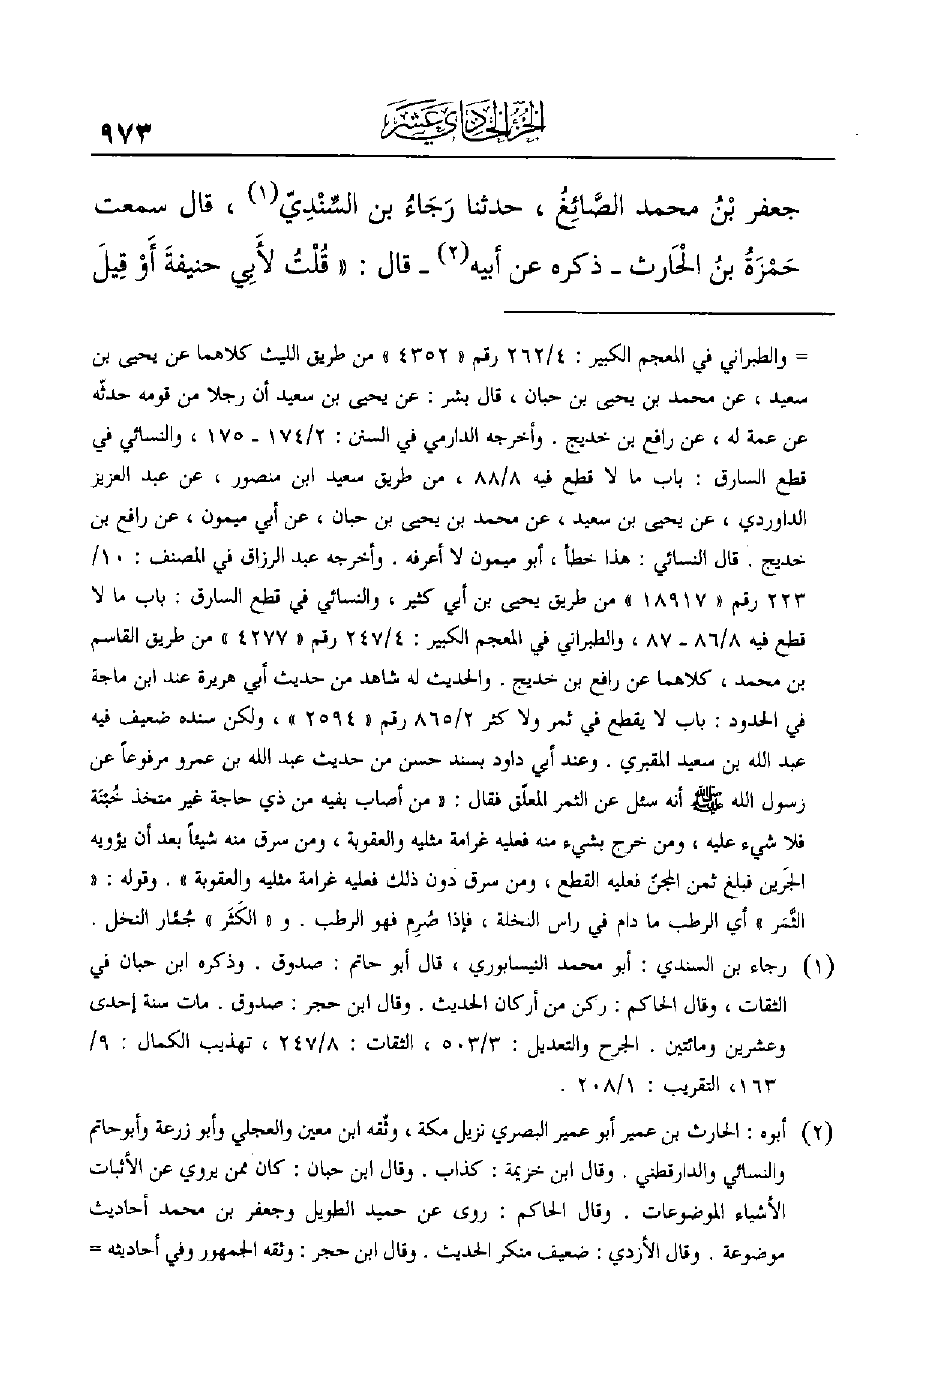 الجزء الحادي عشر ٩٧٣
جعفر بْنُ محمد الصَّائِغُ ، حدثنا رَجَاءُ بن السِّنْدِيّ(١) ، قال سمعت
حَمْزَةُ بنُ الحَارث ـ ذكره عن أبيه(٢) ـ قال : « قُلْتُ لأَبي حنيفةَ أَوْ قِيلَ
= والطبراني في المعجم الكبير : ٢٦٢/٤ رقم « ٤٣٥٢ » من طريق الليث كلاهما عن يحيى بن
سعيد ، عن محمد بن يحيى بن حبان ، قال بشر : عن يحيى بن سعيد أن رجلا من قومه حدثّه
عن عمة له ، عن رافع بن خديج . وأخرجه الدارمي في السنن : ١٧٤/٢ ـ ١٧٥ ، والنسائي في
قطع السارق : باب ما لا قطع فيه ٨٨/٨ ، من طريق سعيد ابن منصور ، عن عبد العزيز
الداوردي ، عن يحيى بن سعيد ، عن محمد بن يحيى بن حبان ، عن أبي ميمون ، عن رافع بن
خديج . قال النسائي : هذا خطأ ، أبو ميمون لا أعرفه . وأخرجه عبد الرزاق في المصنف : ١٠/
٢٢٣ رقم « ١٨٩١٧ » من طريق يحيى بن أبي كثير ، والنسائي في قطع السارق : باب ما لا
قطع فيه ٨٦/٨ ـ ٨٧ ، والطبراني في المعجم الكبير : ٢٤٧/٤ رقم « ٤٢٧٧ » من طريق القاسم
بن محمد ، كلاهما عن رافع بن خديج . والحديث له شاهد من حديث أبي هريرة عند ابن ماجة
في الحدود : باب لا يقطع في ثمر ولا كثر ٨٦٥/٢ رقم « ٢٥٩٤ » ، ولكن سنده ضعيف فيه
عبد الله بن سعيد المقبري . وعند أبي داود بسند حسن من حديث عبد الله بن عمرو مرفوعاً عن
رسول الله ﷺ أنه سئل عن الثمر المعلّق فقال : « من أصاب بفيه من ذي حاجة غير متخذ خُبْنَة
فلا شيء عليه ، ومن خرج بشيء منه فعليه غرامة مثليه والعقوبة ، ومن سرق منه شيئاً بعد أن يؤويه
الجَرين فبلغ ثمن المجنّ فعليه القطع ، ومن سرق دون ذلك فعليه غرامة مثليه والعقوبة » . وقوله : «
الثَّمَر » أي الرطب ما دام في راس النخلة ، فإذا صُرِم فهو الرطب . و « الكَثَر » جُمَّار النخل .
(١) رجاء بن السندي : أبو محمد النيسابوري ، قال أبو حاتم : صدوق . وذكره ابن حبان في
الثقات ، وقال الحاكم : ركن من أركان الحديث . وقال ابن حجر : صدوق . مات سنة إحدى
وعشرين ومائتين . الجرح والتعديل : ٥٠٣/٣ ، الثقات : ٢٤٧/٨ ، تهذيب الكمال : ٩/
١٦٣، التقريب : ٢٠٨/١ .
(٢) أبوه : الحارث بن عمير أبو عمير البصري نزيل مكة ، وثّقه ابن معين والعجلي وأبو زرعة وأبوحاتم
والنسائي والدارقطني . وقال ابن خزيمة : كذاب . وقال ابن حبان : كان ممن يروي عن الأثبات
الأشياء الموضوعات . وقال الحاكم : روى عن حميد الطويل وجعفر بن محمد أحاديث
موضوعة . وقال الأزدي : ضعيف منكر الحديث . وقال ابن حجر : وثقه الجمهور وفي أحاديثه =